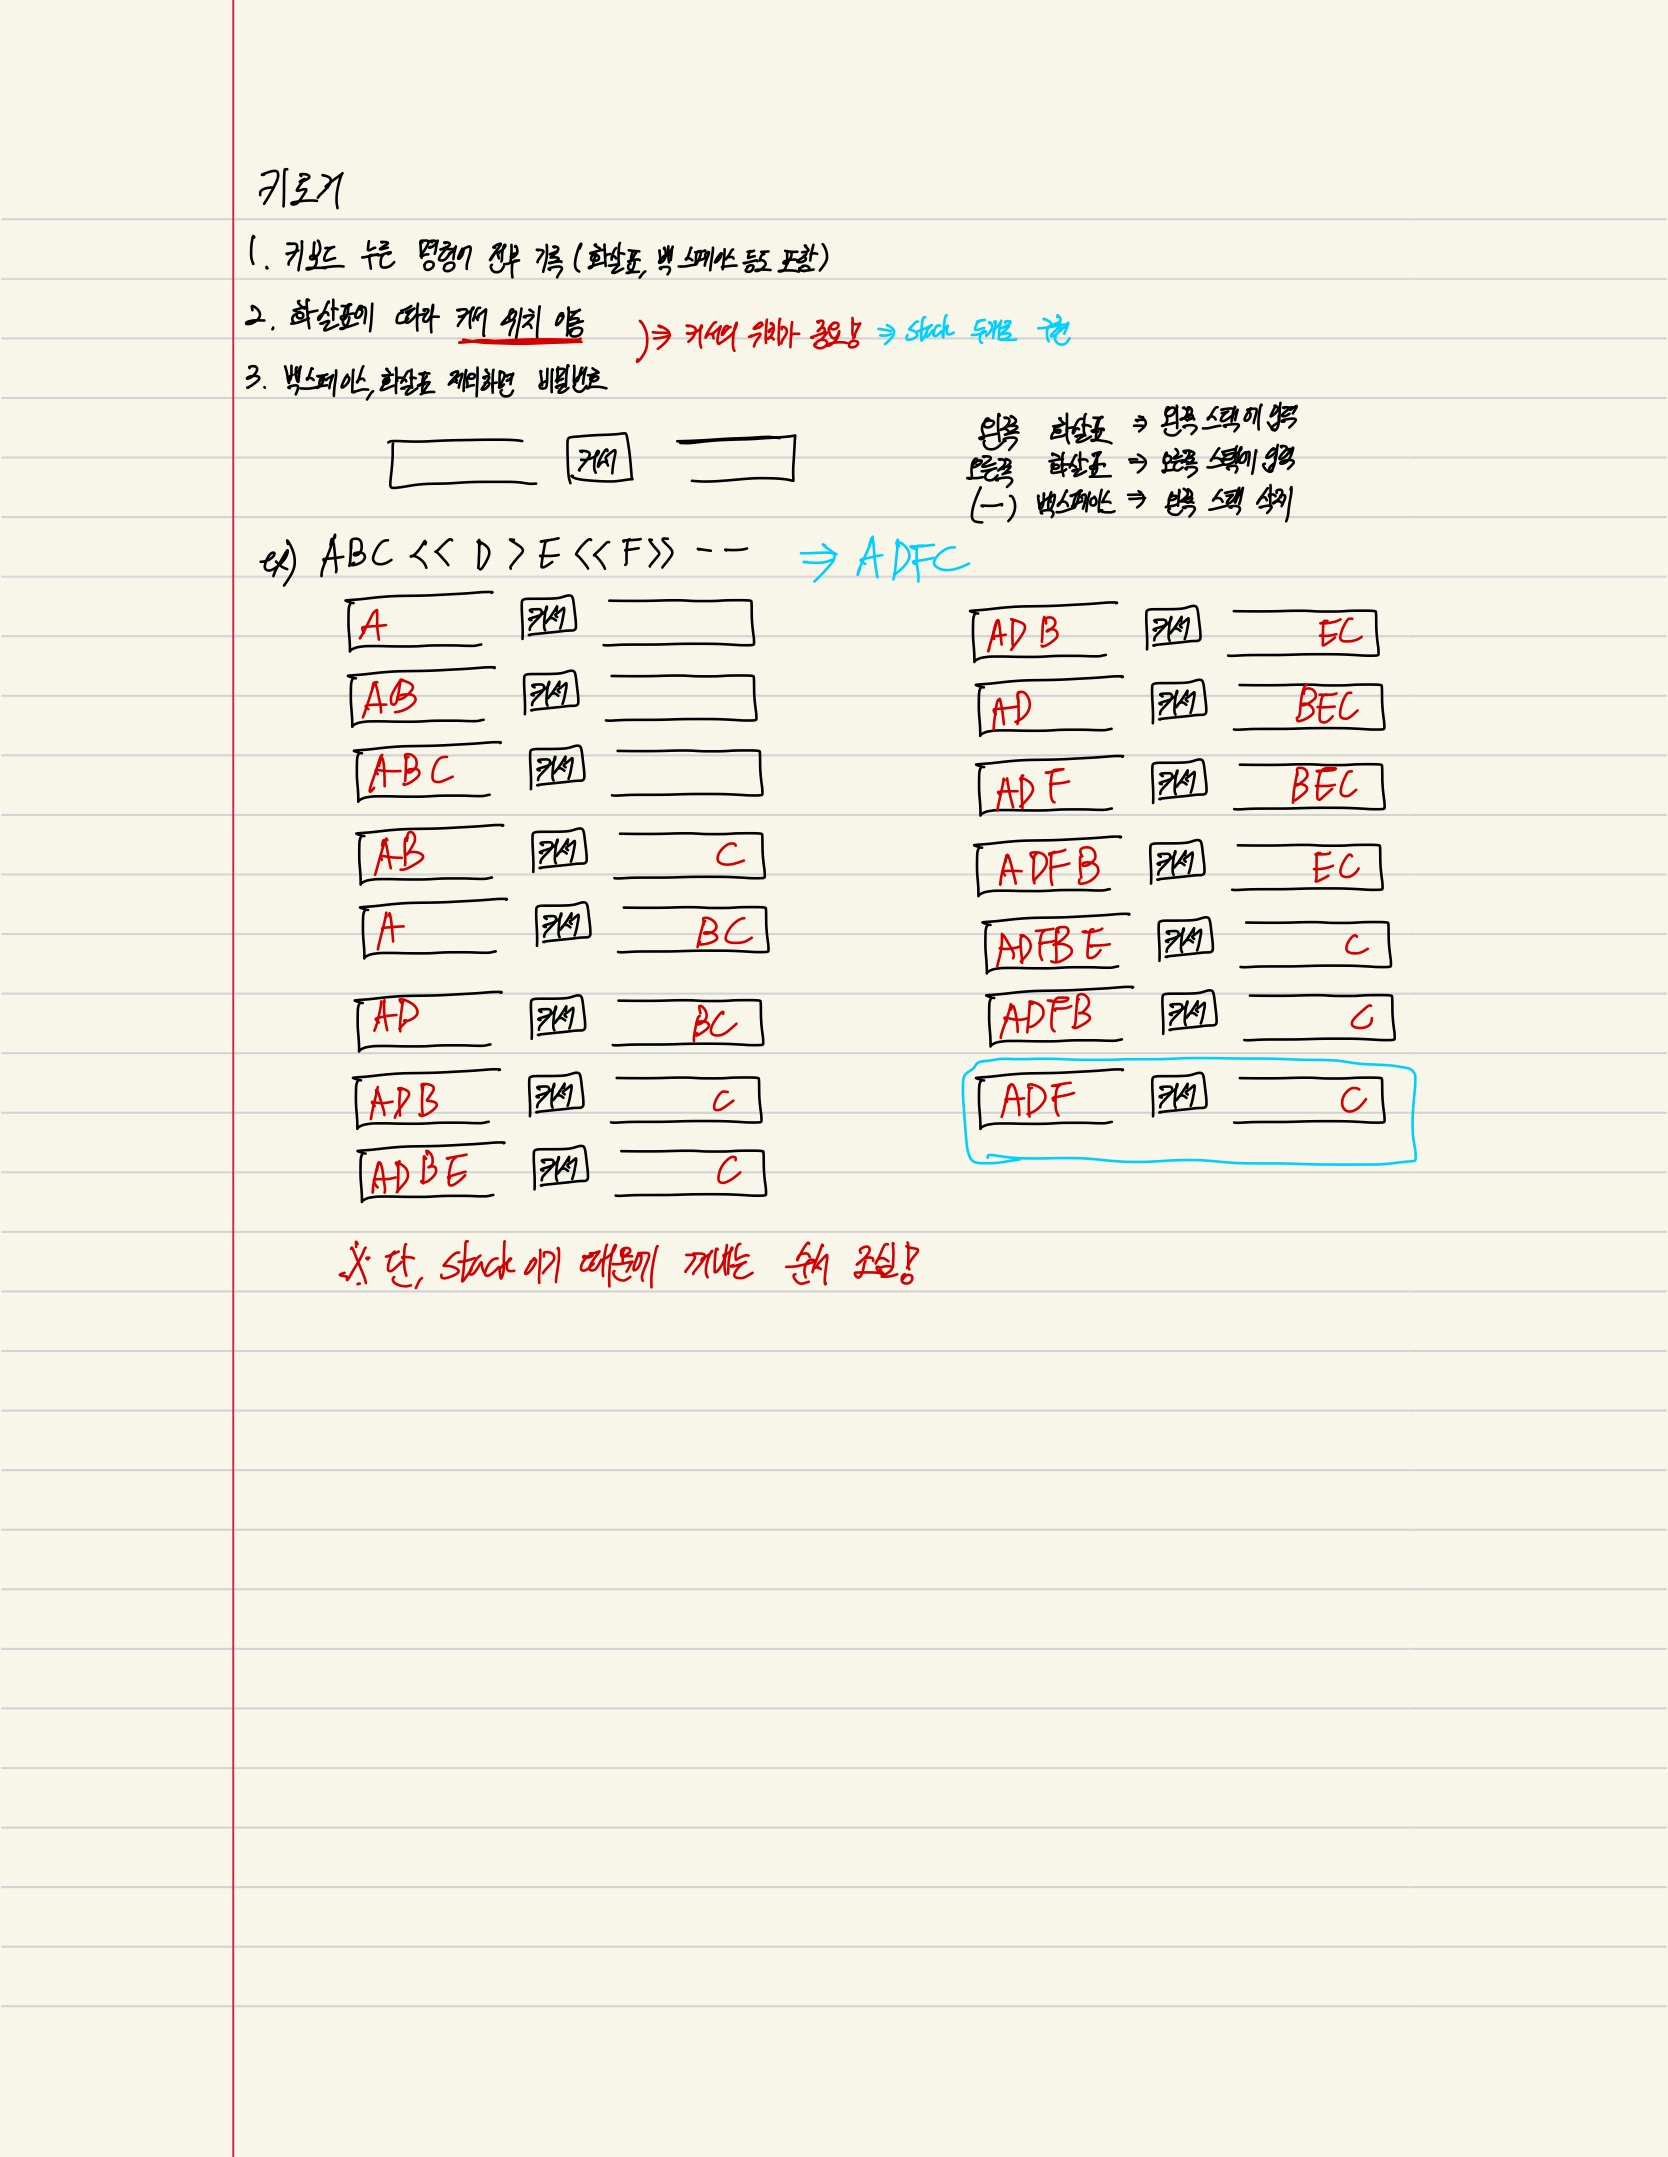 키로거
1. 키보드 누른 명령어 전부 기록 (화살표, 백스페이스 등도 포함)
2. 화살표에 따라 커서 위치 이동
) ⇒ 커서의 위치가 중요! ⇒ stack 두개로 구현
3. 백스페이스, 화살표 제외하면 비밀번호
커서
왼쪽 화살표 ⇒ 왼쪽 스택에 입력
오른쪽 화살표 ⇒ 오른쪽 스택에 입력
(-) 백스페이스 ⇒ 왼쪽 스택 삭제
ex) ABC << D > E << F >> -- ⇒ ADFC
A 커서
AB 커서
ABC 커서
AB 커서 C
A 커서 BC
AD 커서 BC
ADB 커서 C
ADBE 커서 C
ADB 커서 EC
AD 커서 BEC
ADF 커서 BEC
ADFB 커서 EC
ADFBE 커서 C
ADFB 커서 C
ADF 커서 C
※ 단, stack이기 때문에 꺼내는 순서 조심!